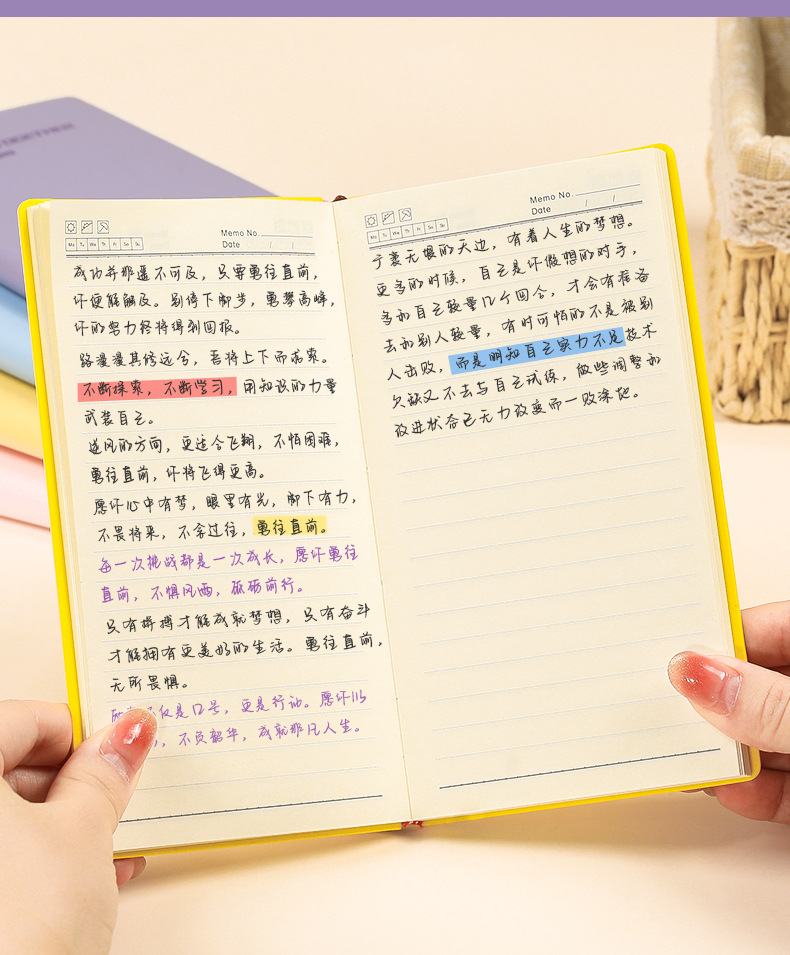 Memo No.
Date / /
Mo Tu We Th Fr Sa Su
成功并非遥不可及，只要勇往直前，
你便能触及。别停下脚步，勇攀高峰，
你的努力终将得到回报。
路漫漫其修远兮，吾将上下而求索。
不断探索，不断学习，用知识的力量
武装自己。
逆风的方向，更适合飞翔，不怕困难，
勇往直前，你将飞得更高。
愿你心中有梦，眼里有光，脚下有力，
不畏将来，不念过往，勇往直前。
每一次挑战都是一次成长，愿你勇往
直前，不惧风雨，砥砺前行。
只有拼搏才能成就梦想，只有奋斗
才能拥有更美好的生活。勇往直前，
无所畏惧。
仅是口号，更是行动。愿你以
不负韶华，成就非凡人生。
Memo No.
Date / /
Mo Tu We Th Fr Sa Su
于袤无垠的天边，有着人生的梦想。
更多的时候，自己是你假想的对手，
多和自己较量几个回合，才会有准备
去和别人较量，有时可怕的不是被别
人击败，而是明知自己实力不足技术
欠缺又不去与自己试练，做些调整和
改进状态已无力改变而一败涂地。